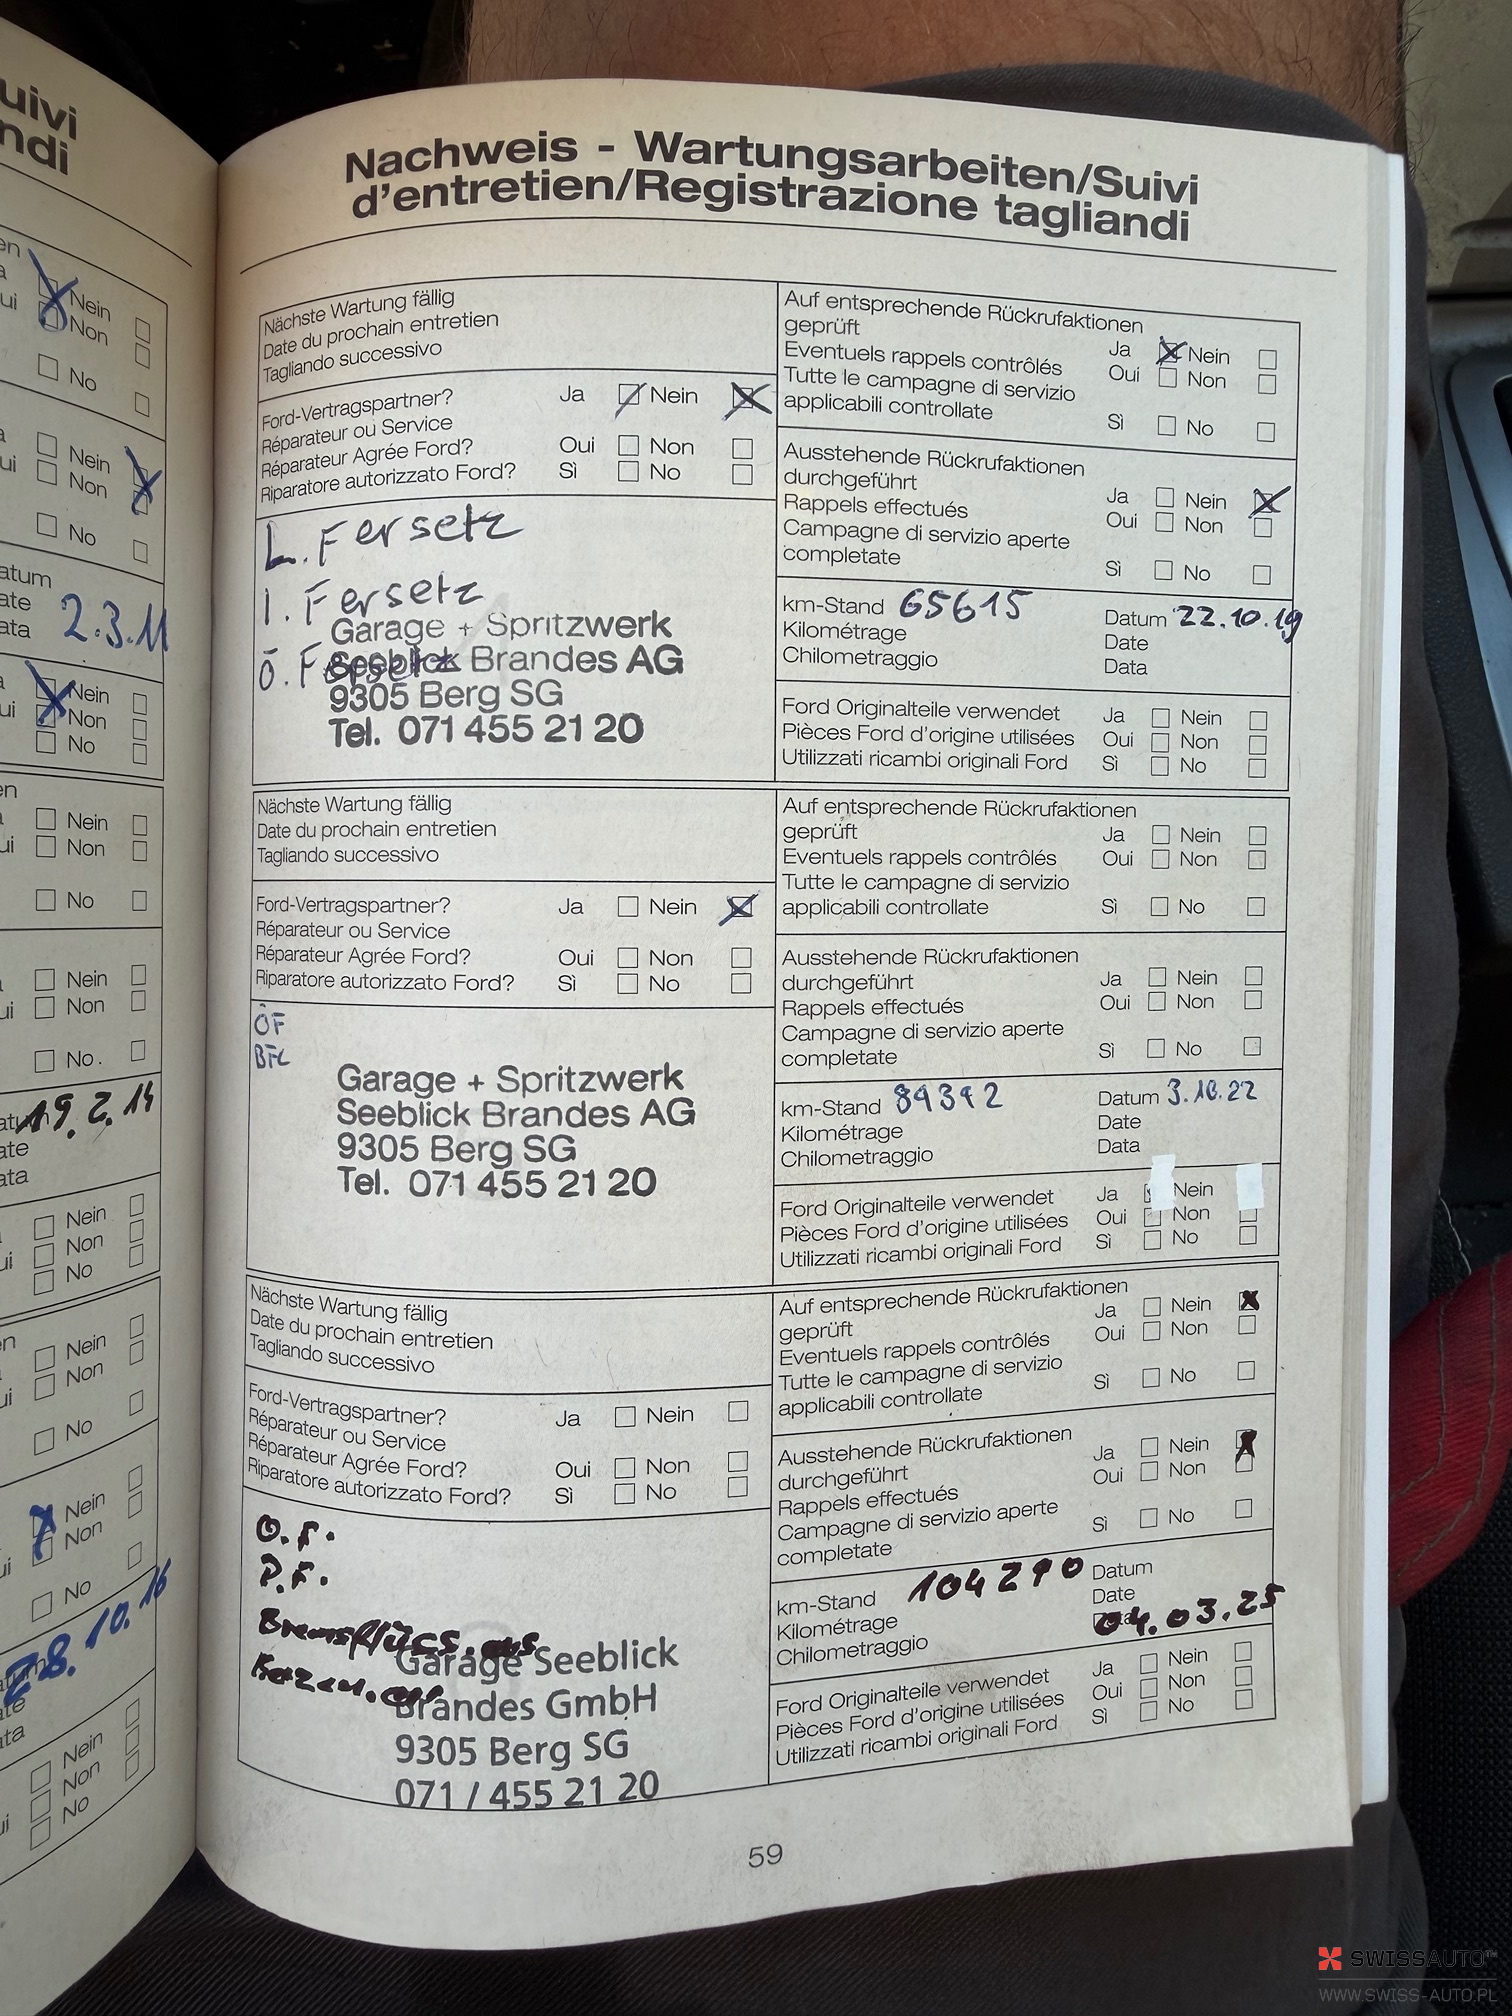 uivi
ndi
en
Nein
ui
Non
No
Nein
ui
Non
No
atum
ate
ata
2.3.11
Nein
ui
Non
No
en
Nein
ui
Non
No
Nein
ui
Non
No.
19.2.14
ate
ata
Nein
Non
ui
No
en
Nein
ui
Non
No
Nein
ui
Non
No
28.10.16
ate
ata
Nein
Non
ui
No
Nachweis - Wartungsarbeiten/Suivi
d'entretien/Registrazione tagliandi
Nächste Wartung fällig
Date du prochain entretien
Tagliando successivo
Ford-Vertragspartner? Ja Nein
Réparateur ou Service
Réparateur Agrée Ford? Oui Non
Riparatore autorizzato Ford? Sì No
L.Fersetz
I. Fersetz
Ö. Fersetz
Garage + Spritzwerk
Seeblick Brandes AG
9305 Berg SG
Tel. 071 455 21 20
Auf entsprechende Rückrufaktionen
geprüft Ja Nein
Eventuels rappels contrôlés Oui Non
Tutte le campagne di servizio
applicabili controllate Sì No
Ausstehende Rückrufaktionen
durchgeführt Ja Nein
Rappels effectués Oui Non
Campagne di servizio aperte
completate Sì No
km-Stand 65615 Datum 22.10.19
Kilométrage Date
Chilometraggio Data
Ford Originalteile verwendet Ja Nein
Pièces Ford d'origine utilisées Oui Non
Utilizzati ricambi originali Ford Sì No
Nächste Wartung fällig
Date du prochain entretien
Tagliando successivo
Ford-Vertragspartner? Ja Nein
Réparateur ou Service
Réparateur Agrée Ford? Oui Non
Riparatore autorizzato Ford? Sì No
ÖF
BFL
Garage + Spritzwerk
Seeblick Brandes AG
9305 Berg SG
Tel. 071 455 21 20
Auf entsprechende Rückrufaktionen
geprüft Ja Nein
Eventuels rappels contrôlés Oui Non
Tutte le campagne di servizio
applicabili controllate Sì No
Ausstehende Rückrufaktionen
durchgeführt Ja Nein
Rappels effectués Oui Non
Campagne di servizio aperte
completate Sì No
km-Stand 89392 Datum 3.10.22
Kilométrage Date
Chilometraggio Data
Ford Originalteile verwendet Ja Nein
Pièces Ford d'origine utilisées Oui Non
Utilizzati ricambi originali Ford Sì No
Nächste Wartung fällig
Date du prochain entretien
Tagliando successivo
Ford-Vertragspartner? Ja Nein
Réparateur ou Service
Réparateur Agrée Ford? Oui Non
Riparatore autorizzato Ford? Sì No
O.F.
P.F.
Garage Seeblick
Brandes GmbH
9305 Berg SG
071 / 455 21 20
Auf entsprechende Rückrufaktionen
geprüft Ja Nein
Eventuels rappels contrôlés Oui Non
Tutte le campagne di servizio
applicabili controllate Sì No
Ausstehende Rückrufaktionen
durchgeführt Ja Nein
Rappels effectués Oui Non
Campagne di servizio aperte
completate Sì No
km-Stand 104290 Datum
Kilométrage Date
Chilometraggio 04.03.25
Ford Originalteile verwendet Ja Nein
Pièces Ford d'origine utilisées Oui Non
Utilizzati ricambi originali Ford Sì No
59
SWISSAUTO™
WWW.SWISS-AUTO.PL